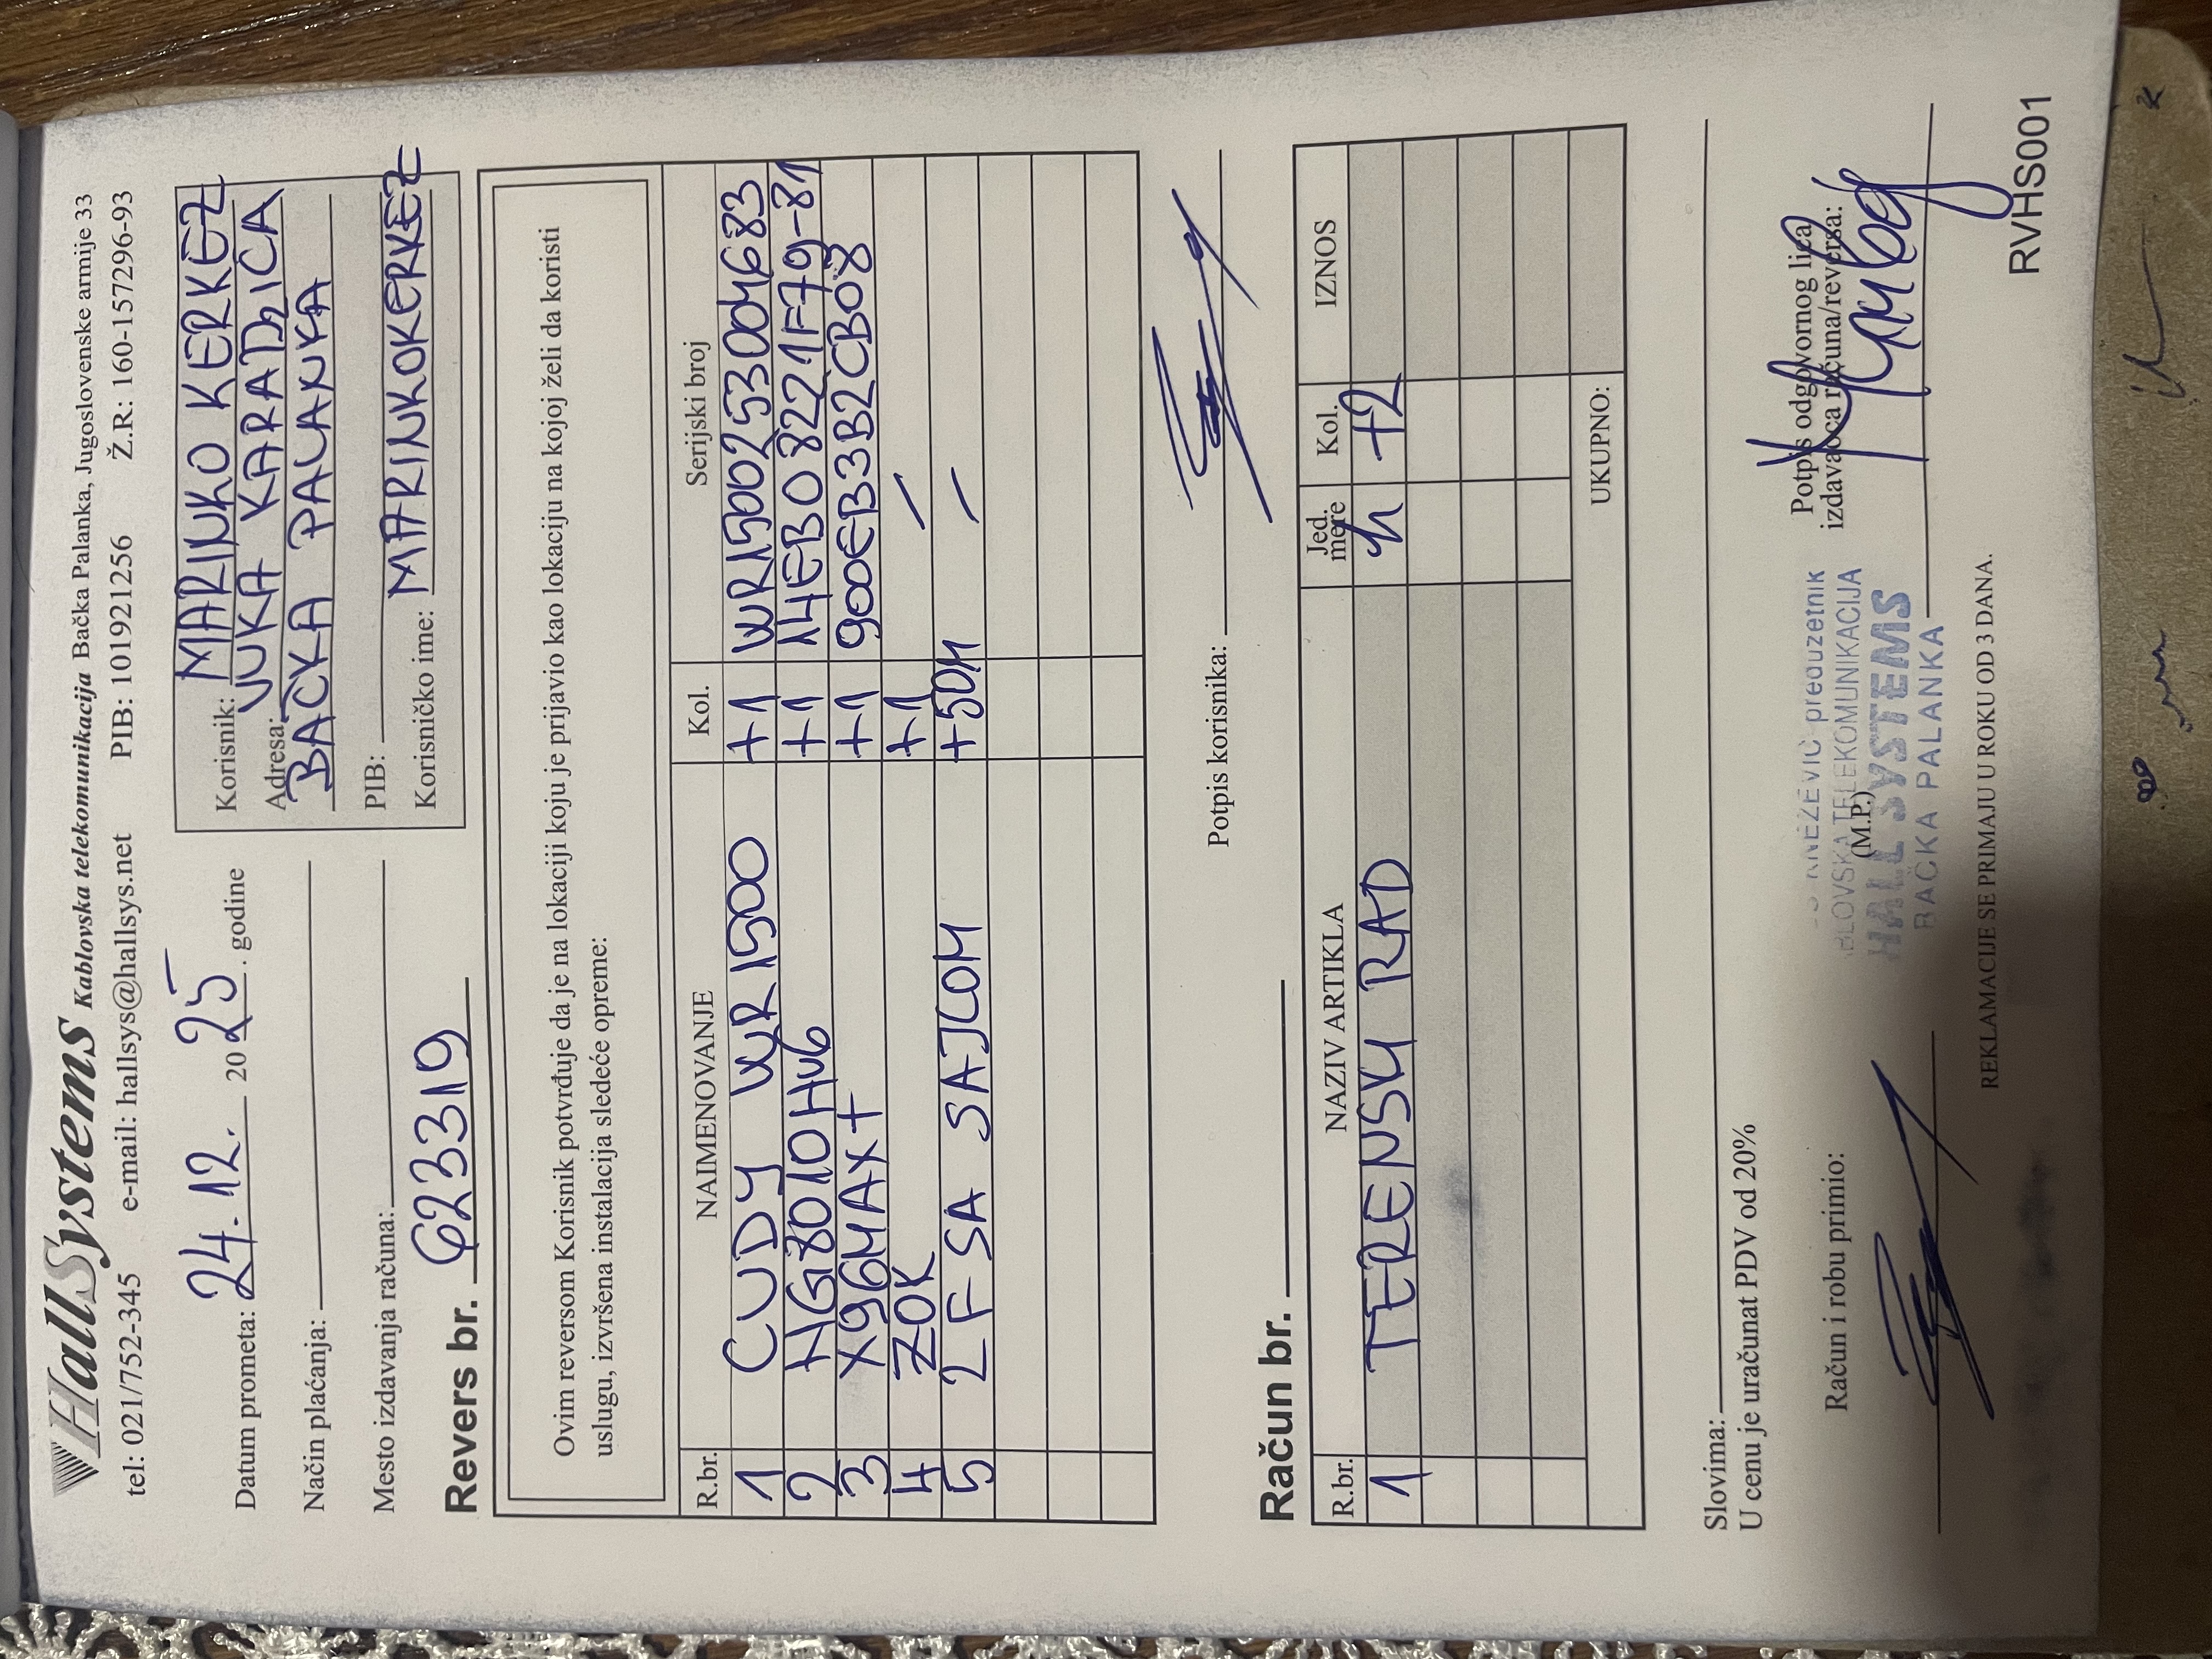 HallSystems Kablovska telekomunikacija Bačka Palanka, Jugoslovenske armije 33
tel: 021/752-345 e-mail: hallsys@hallsys.net PIB: 101921256 Ž.R: 160-157296-93
Datum prometa: 24.12. 2025. godine
Način plaćanja:
Mesto izdavanja računa:
Korisnik: MARINKO KERKEZ
Adresa: VUKA KARADZICA
BAČKA PALANKA
PIB:
Korisničko ime: MARINKOKERKEZ
Revers br. 623319
Ovim reversom Korisnik potvrđuje da je na lokaciji koju je prijavio kao lokaciju na kojoj želi da koristi
uslugu, izvršena instalacija sledeće opreme:
R.br. NAIMENOVANJE Kol. Serijski broj
1 CUDY WR1500 +1 WR1500253004683
2 HG8010Hv6 +1 14EB08221F79-81
3 X96MAX+ +1 900EB3B2CB08
4 ZOK +1 /
5 2F SA SAJLOM +50M /
Potpis korisnika:
Račun br.
R.br. NAZIV ARTIKLA Jed. mere Kol. IZNOS
1 TERENSKI RAD h +2
UKUPNO:
Slovima:
U cenu je uračunat PDV od 20%
Račun i robu primio:
(M.P.)
KNEŽEVIĆ preduzetnik
KABLOVSKA TELEKOMUNIKACIJA
HALL SYSTEMS
BAČKA PALANKA
Potpis odgovornog lica
izdavaoca računa/reversa:
REKLAMACIJE SE PRIMAJU U ROKU OD 3 DANA.
RVHS001